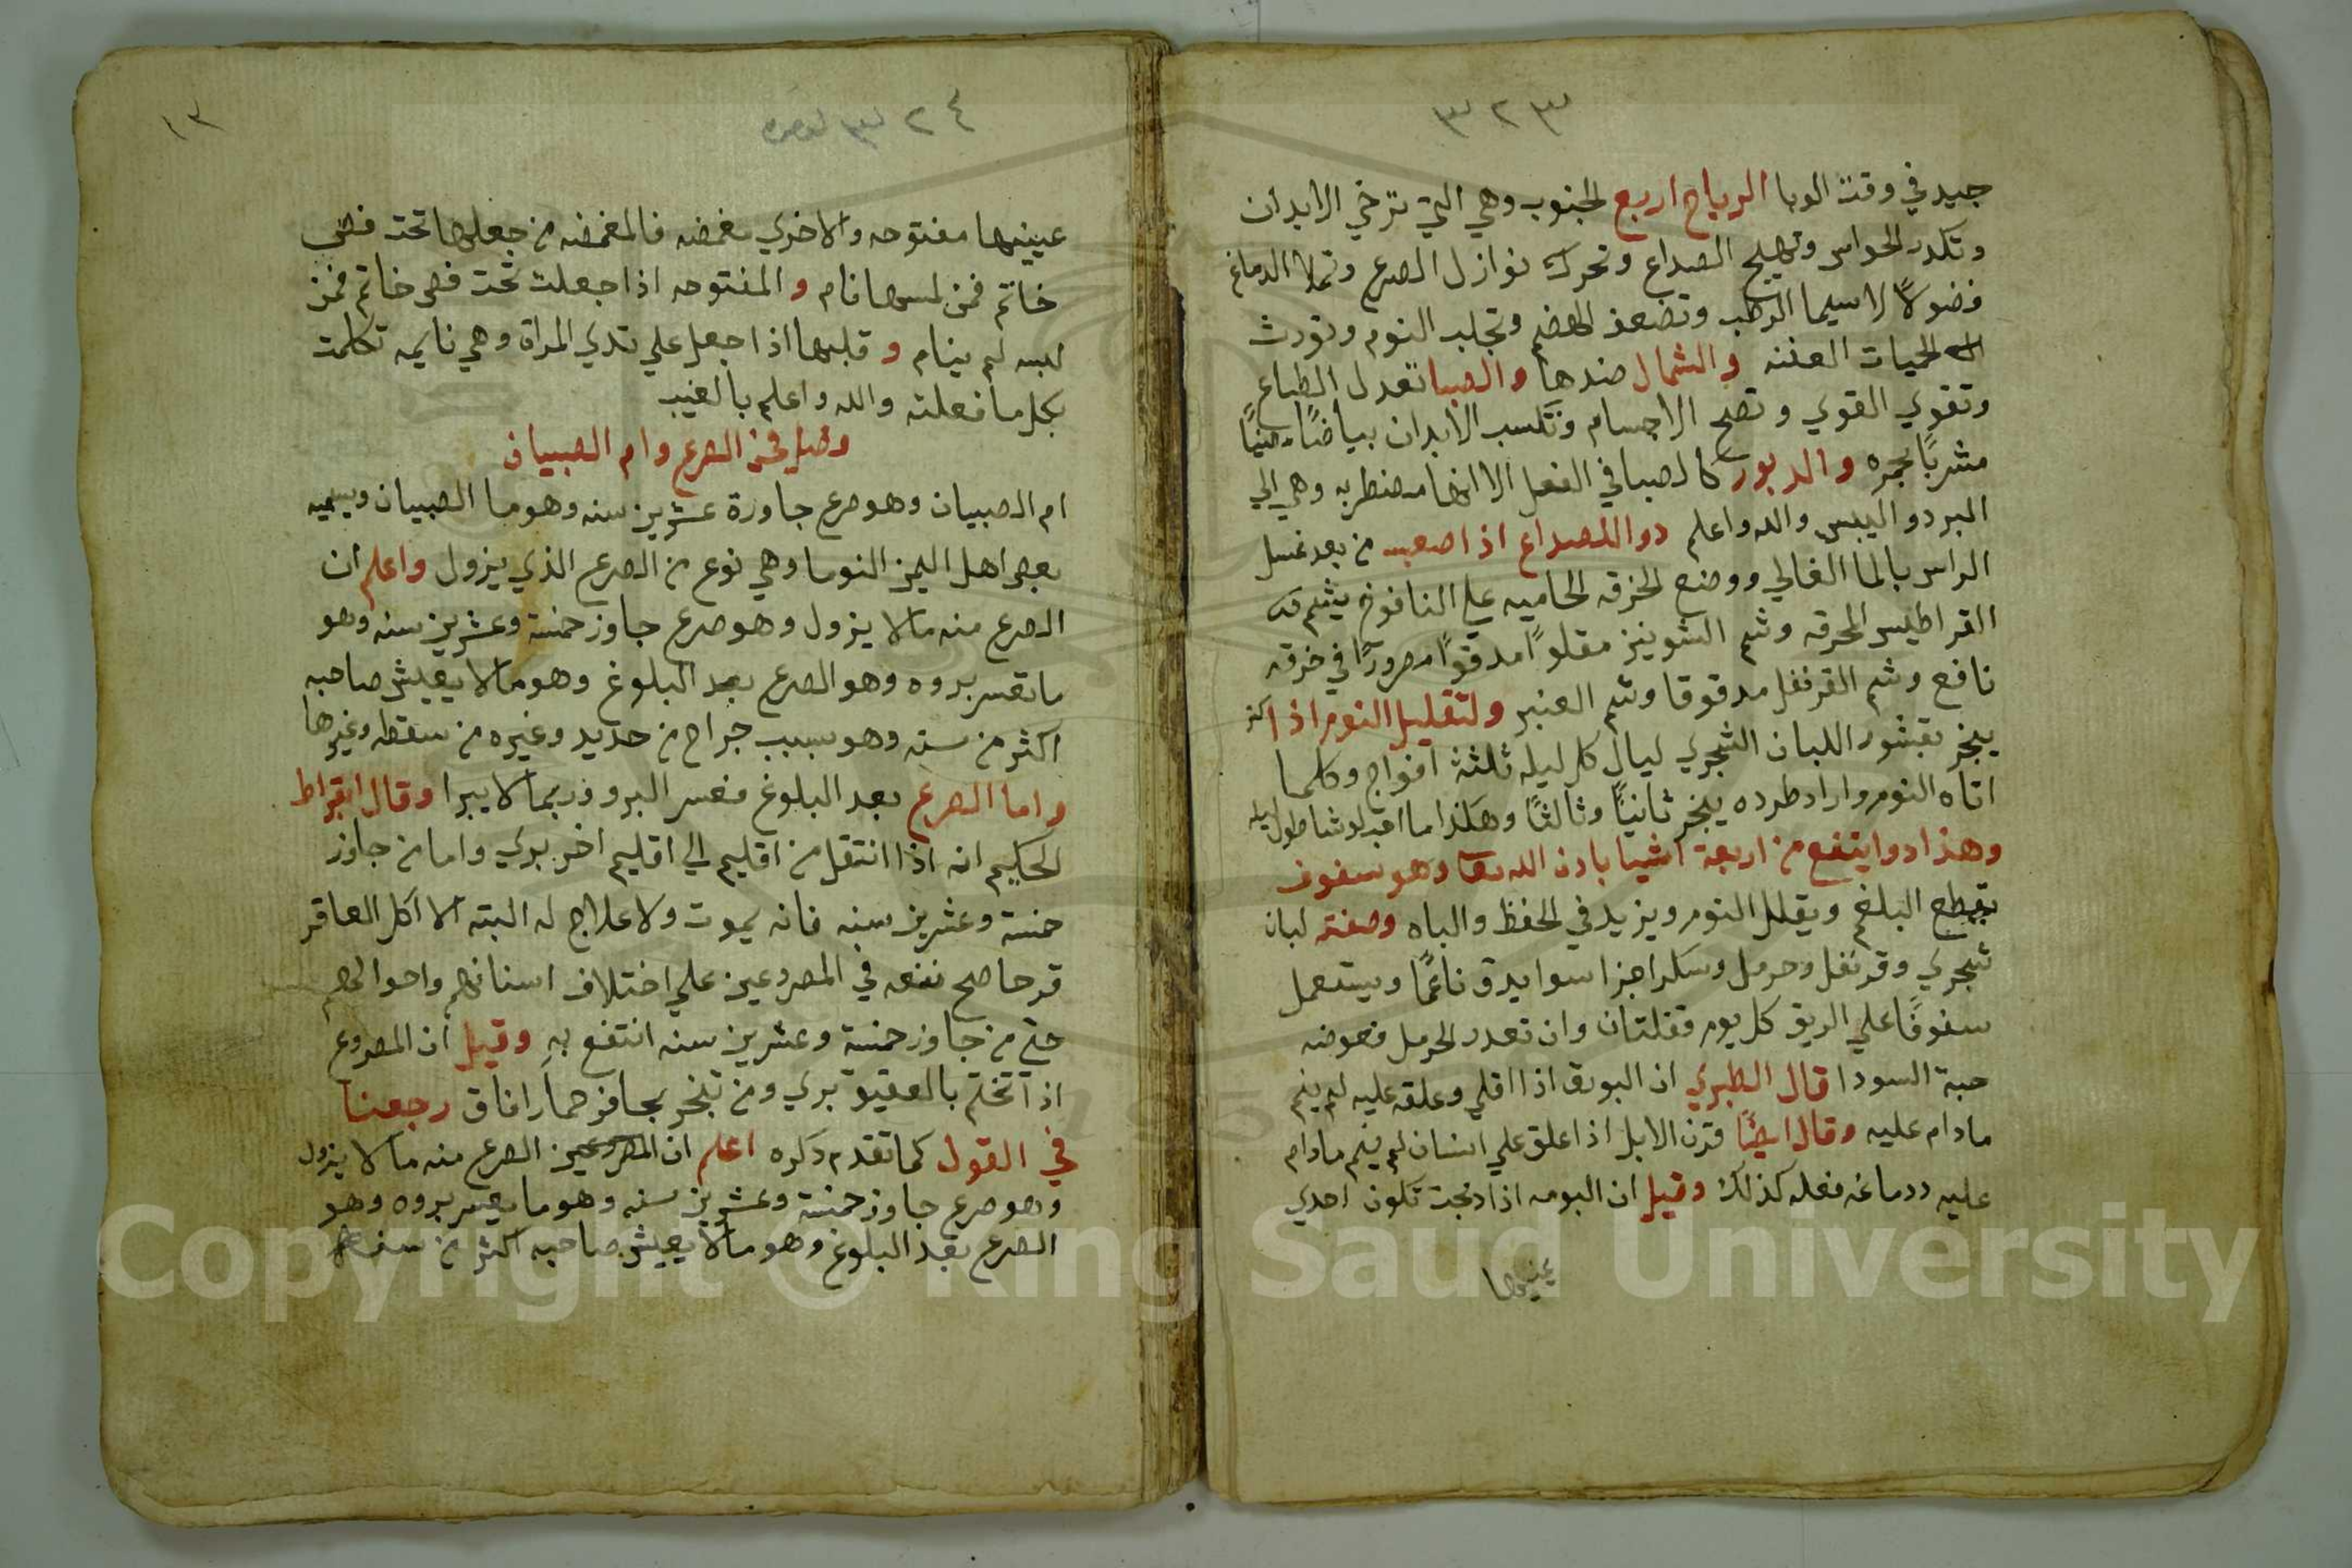 ٣٢٣
جيد في وقت الوبا الرياح اربع الجنوب وهي التي ترخي الابدان
وتكدر الحواس وتهيج الصداع وتحرك نوازل الصرع وتملا الدماغ
فضولاً لاسيما الرطب وتضعف الهضم وتجلب النوم وتورث
الحميات العفنه والشمال ضدها والصبا تعدل الطباع
وتقوي القوي وتصح الاجسام وتكسب الابدان بياضًا
مشربًا بحمره والدبور كالصبا في الفعل الا انها مضطربه وهي الي
البرد واليبس والله واعلم دوا للصداع اذا صعب من بعد غسل
الراس بالما الغالي ووضع الخرقه الحاميه علي النافوخ يشم
القراطيس المحرقه وشم الشونيز مقلوًا مدقوًا مصرورًا في خرقه
نافع وشم القرنفل مدقوقا وشم العنبر ولتقليل النوم اذا اكثر
يبخر بقشور اللبان الشجري ليال كل ليله ثلثة افواج وكلما
اتاه النوم واراد طرده يبخر ثانيًا وثالثًا وهكذا ما لو شا طول ليله
وهذا دوا ينفع من اربعة اشيا باذن الله تعا وهو سفوف
يقطع البلغم ويقلل النوم ويزيد في الحفظ والباه وصفته لبان
شجري وقرنفل وحرمل وسكر اجزا سوا يدق ناعمًا ويستعمل
سفوفًا علي الريق كل يوم قفلتان وان تعدر الحرمل فعوضه
حبة السودا قال الطبري ان البورق اذا اقلي وعلق عليه لم ينم
مادام عليه وقال ايضًا قرن الابل اذا علق علي انسان لم ينم مادام
عليه ودماغه فعله كذلك وقيل ان البومه اذا دبحت تكون احدي
عينيها
٣٢٤
١٣
عينيها مفتوحه والاخري مغمضه فالمغمضه من جعلها تحت فص
خاتم فمن لمسها نام والمفتوحه اذا جعلت تحت فص خاتم فمن
لبسه لم ينام وقلبها اذا جعل علي تدي المراة وهي نايمه تكلمت
بكل ما فعلته والله واعلم بالغيب
وصل في الصرع وام الصبيان
ام الصبيان وهو صرع جاورة عشرين سنه وهو ما الصبيان ويسميه
بعض اهل اليمن النوما وهي نوع من الصرع الذي يزول واعلم ان
الصرع منه مالا يزول وهو صرع جاوز خمسة وعشرين سنه وهو
ما تعسر بروه وهو الصرع بعد البلوغ وهو مالا يعيش صاحبه
اكثر من سنه وهو سبب جراح من حديد وغيره من سقطه وغيرها
واما الصرع بعد البلوغ فعسر البرو وربما لا يبرا وقال ابقراط
الحكيم انه اذا انتقل من اقليم الي اقليم اخر بري واما من جاوز
خمسة وعشرين سنه فانه يموت ولا علاج له البته الا اكل العاقر
قرحا صح نفعه في المصروعين علي اختلاف اسنانهم واحوالهم
حتي من جاوز خمسة وعشرين سنه انتفع به وقيل ان المصروع
اذا تختم بالعقيق بري ومن تبخر بحافر حمار افاق رجعنا
في القول كما تقدم دكره اعلم ان المصروعين الصرع منه مالا يزول
وهو صرع جاوز خمسة وعشرين سنه وهو ما يعسر بروه وهو
الصرع بعد البلوغ وهو مالا يعيش صاحبه اكثر من سنه
Copyright © King Saud University